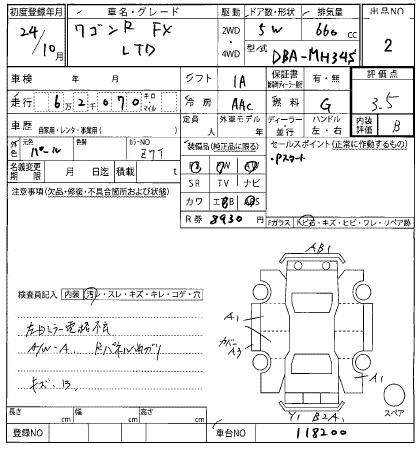 初度登録年月 車名・グレード 駆動 ドア数・形状 排気量 出品NO
24年 10月 ワゴンR FX LTD 2WD ・ 4WD 5W 660 cc 2
型式 DBA-MH34S
車検 年 月 シフト IA 保証書 有・無 評価点
走行 6万2千070 キロ マイル 冷房 AAC 燃料 G 3.5
車歴 自家用・レンタ・事業用( ) 定員 外車モデル 年 ディーラー・並行 ハンドル 左・右 内装評価 B
外色 元色 パール 色替 カラーNO Z7T 装備品(純正品に限る) セールスポイント(正常に作動するもの)
・Pスタート
名義変更期限 月 日迄 積載 t PS PW AW
SR TV ナビ
注意事項(欠品・修復・不具合箇所および状態) カワ エアB ABS
R券 8930 円 Fガラス 飛ビ石・キズ・ヒビ・ワレ・リペア跡
AB1
検査員記入 内装 汚レ・スレ・キズ・キレ・コゲ・穴
A1
左右ミラー電格不良
A/W-A Rパネル曲がり
カバー A3
キズ・B
A1
スペア
Y1 B2A1
長さ cm 幅 cm 高さ cm
登録NO 車台NO 118200